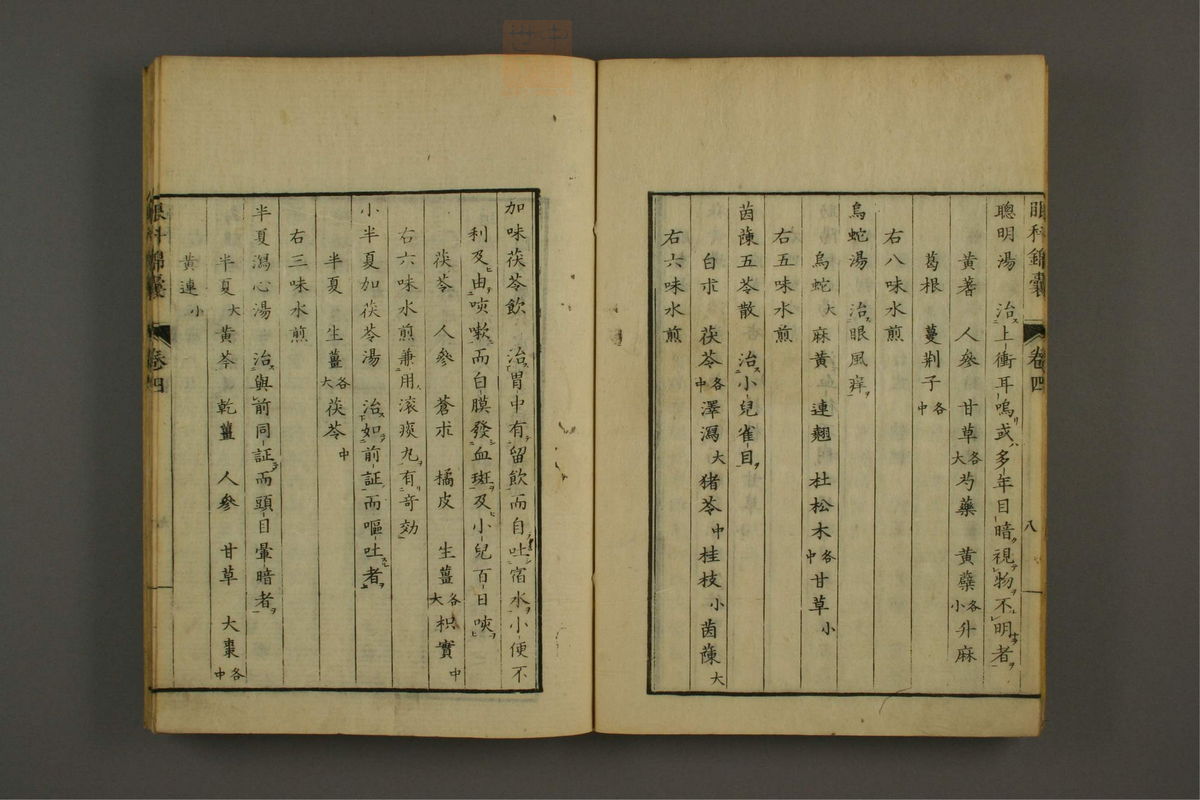 眼科錦囊 卷四 八
聰明湯 治上衝耳鳴或多年目暗視物不明者
黃蓍 人參 甘草各大芍藥 黃蘗各小升麻
葛根 蔓荆子各中
右八味水煎
烏蛇湯 治眼風痒
烏蛇大麻黃 連翹 杜松木各中甘草小
右五味水煎
茵蔯五苓散 治小兒雀目
白朮 茯苓各中澤瀉大猪苓中桂枝小茵蔯大
右六味水煎
加味茯苓飲 治胃中有留飲而自吐宿水小便不
利及由咳嗽而白膜發血斑及小兒百日咳
茯苓 人參 蒼朮 橘皮 生薑各大枳實中
右六味水煎兼用滚痰丸有奇効
小半夏加茯苓湯 治如前証而嘔吐者
半夏 生薑各大茯苓中
右三味水煎
半夏瀉心湯 治與前同証而頭目暈暗者
半夏大黃芩 乾薑 人參 甘草 大棗各中
黃連小
眼科錦囊 卷四